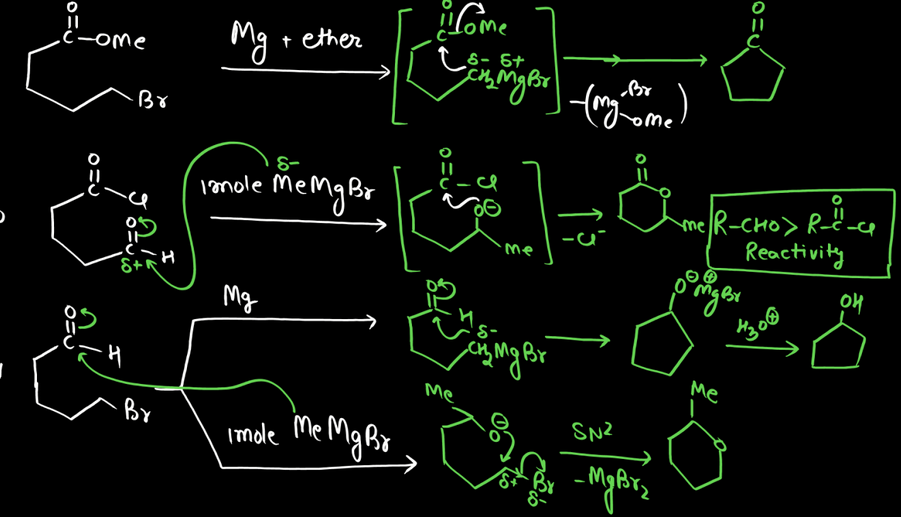 O
C–OMe
Br
Mg + ether
O
C–OMe
δ- δ+
CH2MgBr
–(Mg Br OMe)
O
C
O
C
Cl
O
C–H
δ+
δ-
1mole MeMgBr
O
C–Cl
O⊖
Me
–Cl-
O
O
Me
R–CHO > R–C–Cl
O
Reactivity
O
C–H
Br
Mg
O
H
δ-
CH2MgBr
O⊖ ⊕MgBr
H3O⊕
OH
1mole MeMgBr
Me
O⊖
δ+ Br
δ-
SN2
–MgBr2
Me
O